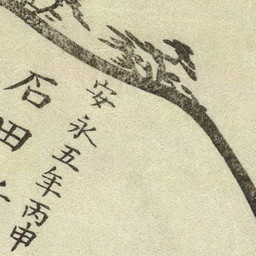 安永五年丙申
石田